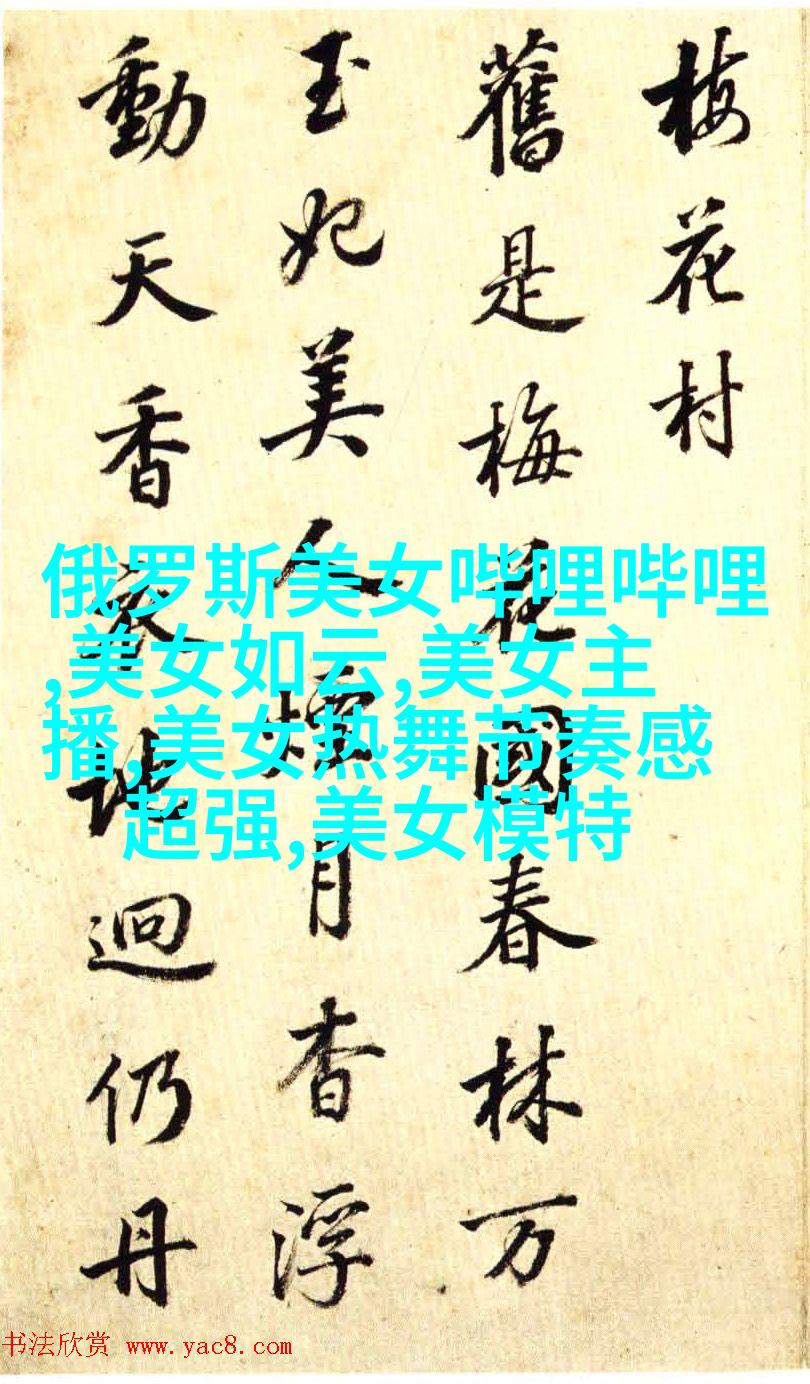 梅花村
舊是梅花國春林万
玉妃美人煙月杳浮
動天香地迥仍丹
俄罗斯美女哔哩哔哩
,美女如云,美女主
播,美女热舞节奏感
超强,美女模特
书法欣赏 www.yac8.com